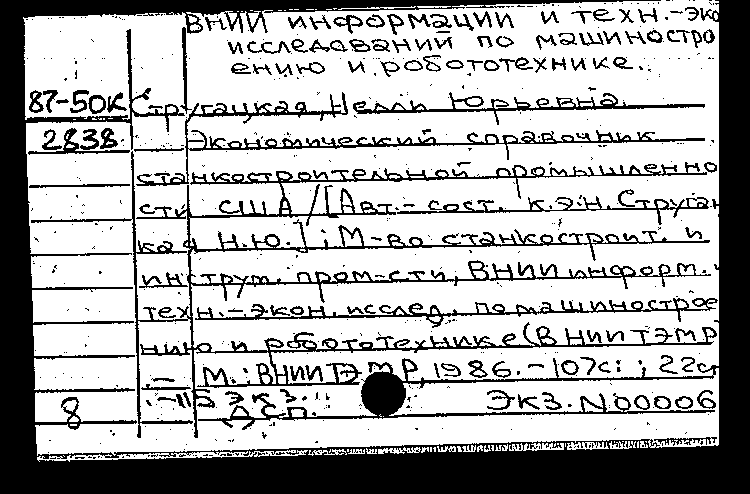 ВНИИ информации и техн.-эко
исследований по машиностро
ению и робототехнике.
87-50К Стругацкая, Нелли Юрьевна.
2838 Экономический справочник
станкостроительной промышленно
сти США / [Авт.-сост. к.э.н. Стругац
кая Н.Ю.] ; М-во станкостроит. и
инструм. пром-сти, ВНИИ информ. и
техн.-экон. исслед. по машинострое
нию и робототехнике (ВНИИТЭМР)
. - М. : ВНИИТЭМР, 1986. - 107с. ; 22см
. - 115 экз.
8 ДСП. ЭКЗ. N00006